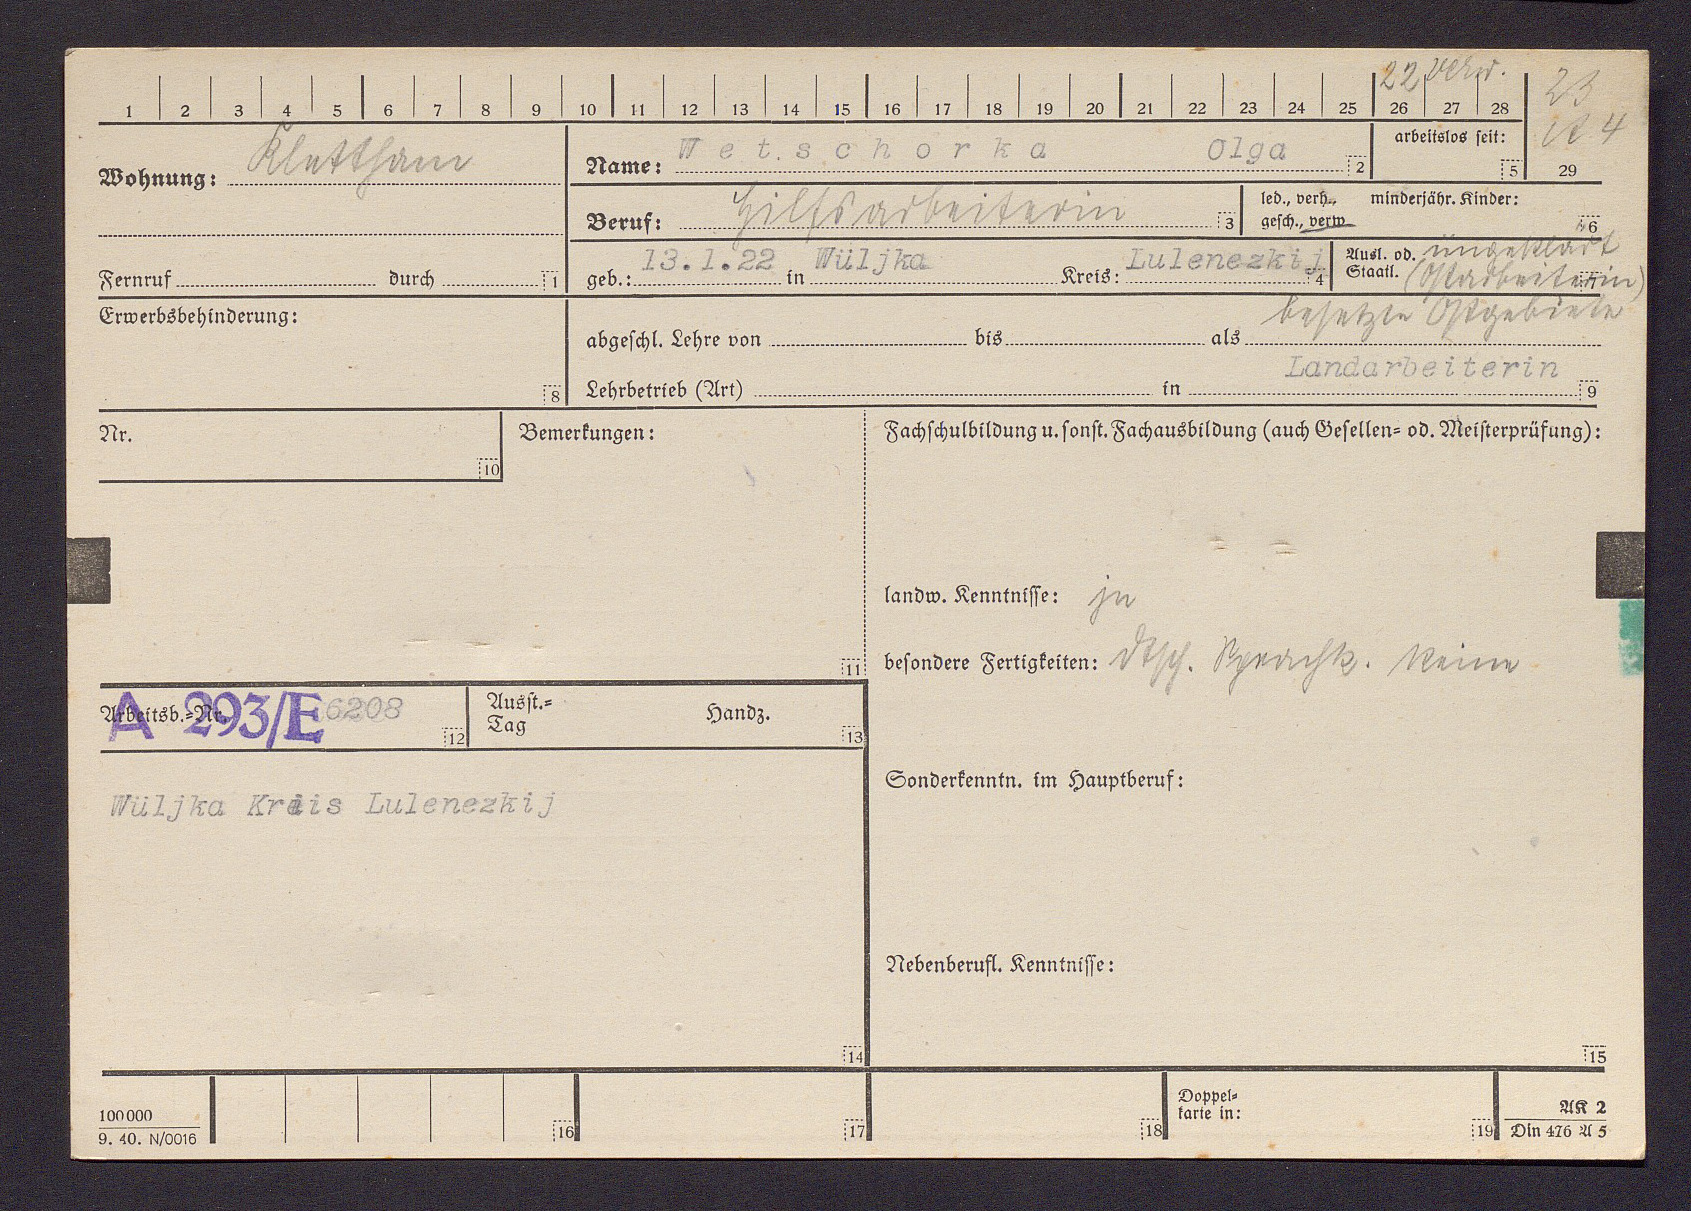 22 verw.
1 2 3 4 5 6 7 8 9 10 11 12 13 14 15 16 17 18 19 20 21 22 23 24 25 26 27 28
23
4
29
Wohnung: Klettham
Name: Wetschorka Olga 2
arbeitslos seit: 5
Beruf: Hilfsarbeiterin 3
led., verh., gesch., verw. minderjähr. Kinder: 6
Fernruf durch 1
geb.: 13.1.22 in Wüljka Kreis: Lulenezkij 4
Ausl. od. Staatl. ungeklärt
(Ostarbeiterin)
besetzte Ostgebiete
Erwerbsbehinderung: 8
abgeschl. Lehre von bis als
Landarbeiterin
Lehrbetrieb (Art) in 9
Nr. 10
Bemerkungen: 11
Fachschulbildung u. sonst. Fachausbildung (auch Gesellen= od. Meisterprüfung):
landw. Kenntnisse: ja
besondere Fertigkeiten: dtsch. Sprachk. keine
Arbeitsb.=Nr. A 293/E 6208 12
Ausst.=
Tag Handz. 13
Wüljka Kreis Lulenezkij
14
Sonderkenntn. im Hauptberuf:
Nebenberufl. Kenntnisse:
15
100000
9. 40. N/0016
16 17 18
Doppel=
karte in: 19
AK 2
Din 476 A 5